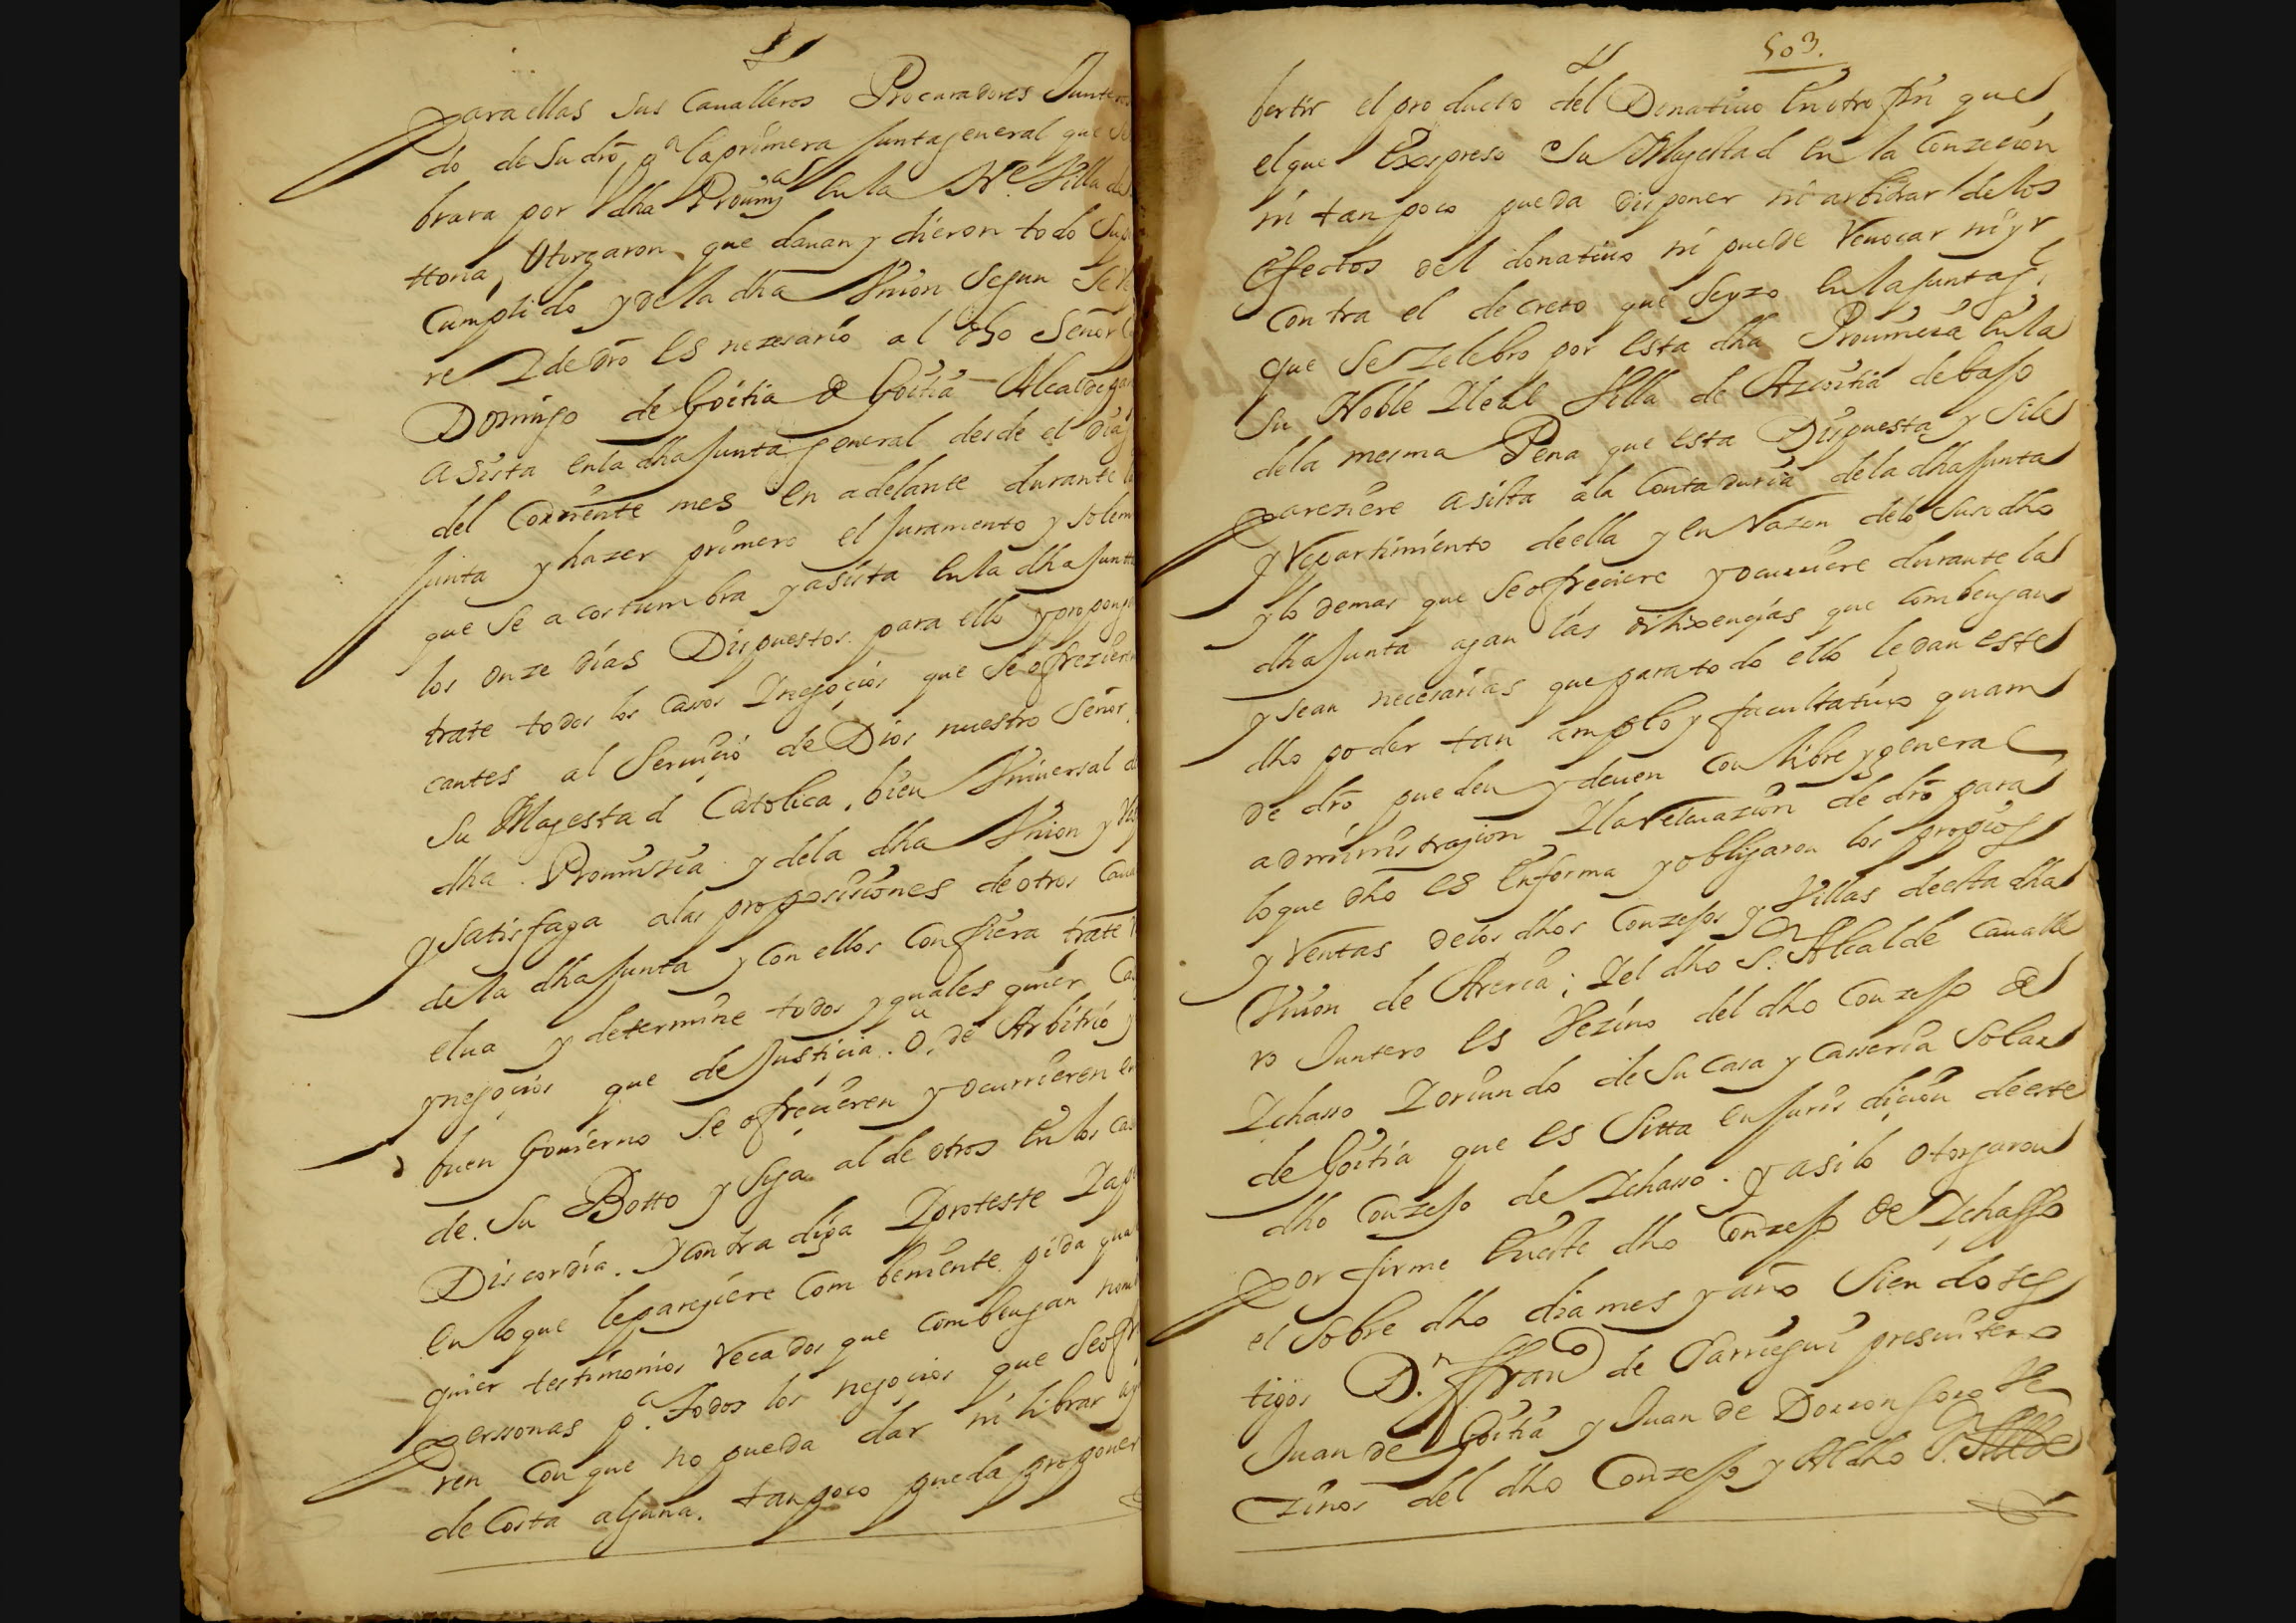 para ellas sus Caualleros Procuradores Junteros
do de su dro pa la primera Junta general que se
brara por dha Prouinas en la Ne Villa de
ttona, Otorgaron que dauan y dieron todo su
Cumplido y de la dha Vnion segun se le
re I de dro es nezesario al dho Señor
Domingo de Goitia & Goitia Alcalde
asista en la dha Junta general desde el dia
del Corriente mes en adelante durante la
Junta y hazer primero el Juramento y solem
que se acostumbra y asista en la dha Junta
los onze dias Dispuestos para ello y proponga
trate todos los casos I negocios que se ofrezieren
cantes al Seruicio de Dios nuestro Señor
Su Magestad Catolica, bien Vniuersal de
dha Prouinzia y de la dha Vnion y
y satisfaga a las proposiciones de otros Caua
de la dha Junta y con ellos Confiera trate
elua y determine todos y quales quier
y negocios que de Justicia. o. de Arbitrio y
buen Gouierno se ofrecieren y ocurrieren en
de Su Botto y siga al de otros en los cas
Discordia. Y Contra diga I proteste I ap
en lo que le pareziere Com beniente pida qual
quier testimonios recados que combengan nom
perssonas pa. todos los negocios que se ofre
ren con que no pueda dar ni librar
de Costa alguna. tanpoco pueda proponer
503.
bertir el producto del Donatiuo en otro fin que
el que Exspreso Su Magestad en la Conzecion
ni tan poco pueda disponer ni arbitrar de los
efectos del donatiuo ni puede reuocar ni yr
Contra el decreto que se yzo en la Junta g
que se zelebro por esta dha Prouincia en la
Su Noble I leal Villa de Azcoitia debajo
de la mesma Pena que esta Dispuesta y si le
pareziere asista a la Contaduria de la dha Junta
y repartimiento de ella y en razon de lo suso dho
y lo demas que se ofreciere y ocurriere durante la
dha Junta agan las dilixencias que combengan
y sean necesarias que para todo ello le dan este
dho poder tan amplo y facultatiuo quam
de dro pueden y deuen con libre y general
administrazion I la reluazion de dro para
lo que dho es en forma y obligaron los propios
y rentas de los dhos Conzejos y Villas de esta dha
Vnion de Areria; I el dho Sr. Alcalde Cavalle
ro Juntero es Vezino del dho Conzejo de
Ichasso I oriundo de su casa y casseria Solar
de Goitia que es Sitta en Jurisdicion de este
dho Conzejo de Ichasso. y asi lo otorgaron
por firme en este dho Conzejo de Ichasso
el sobre dho dia mes y año Siendo tes
tigos Dn ffranco de Garriegui presuitero
Juan de Goitia y Juan de Dorronsoro Ve
zinos del dho Conzejo y Al dho Sr. Allde